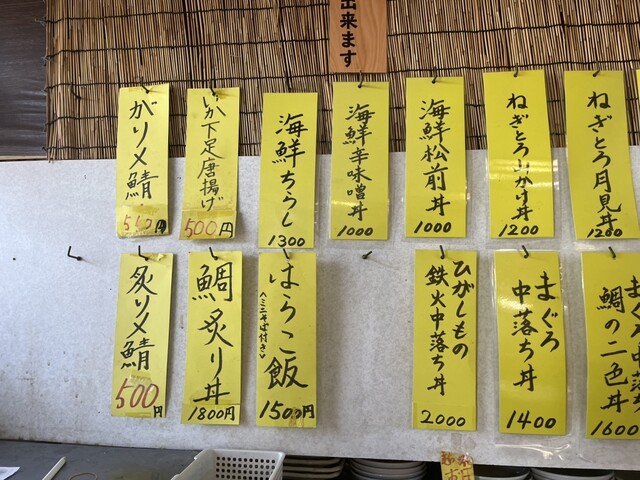 出来ます
がり〆鯖
500
いか下足唐揚げ
500円
海鮮ちらし
1300
海鮮辛味噌丼
1000
海鮮松前丼
1000
ねぎとろ山かけ丼
1200
ねぎとろ月見丼
1200
炙り〆鯖
500
鯛炙り丼
1800円
はらこ飯
<ミニそば付き>
1500円
ひがしもの
鉄火中落ち丼
2000
まぐろ
中落ち丼
1400
鯛の二色丼
1600